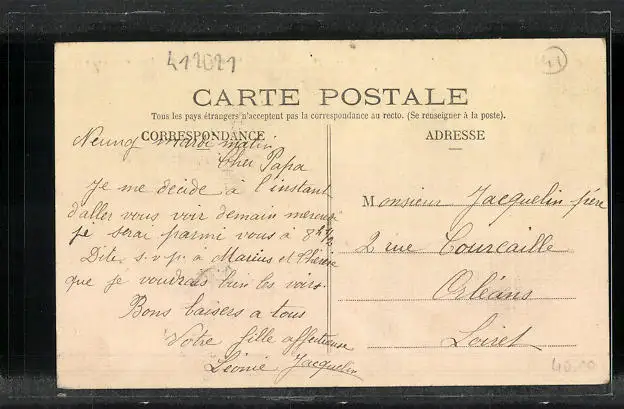 412021
41
CARTE POSTALE
Tous les pays étrangers n'acceptent pas la correspondance au recto. (Se renseigner à la poste).
CORRESPONDANCE
Neung mardi matin
Cher Papa
Je me décide à l'instant
d'aller vous voir demain mercredi
je serai parmi vous à 8h 1/2
Dites s.v.p. à Marius et Thérèse
que je voudrais bien les voir.
Bons baisers a tous
Votre fille affectueuse
Léonie Jacquelin
ADRESSE
Monsieur Jacquelin père
2 rue Courcaille
Orléans
Loiret
40.10